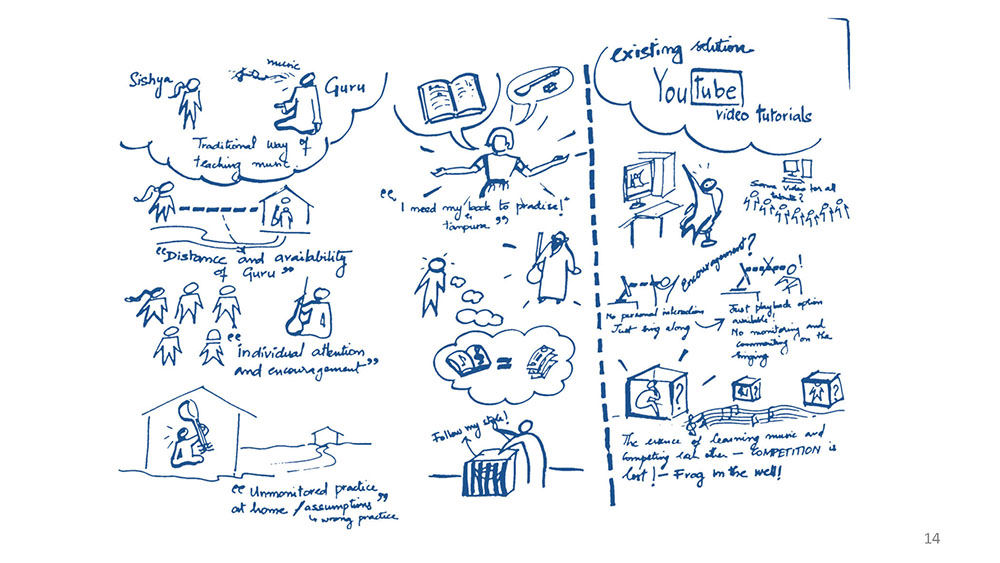 Sishya
music
Guru
Traditional way of
teaching music.
"Distance and availability
of Guru"
"individual attention
and encouragement"
"Unmonitored practice
at home /assumptions"
↳ wrong practice
"I need my book to practise!"
"tanpura"
=
Follow my style!
existing solution
YouTube
video tutorials
Same video for all
talents?
encouragement?
!
No personal interaction
Just sing along
Just playback option
available!
No monitoring and
commenting on the
singing
?
?
?
The essence of learning music and
competing each other – COMPETITION is
lost! – Frog in the well!
14